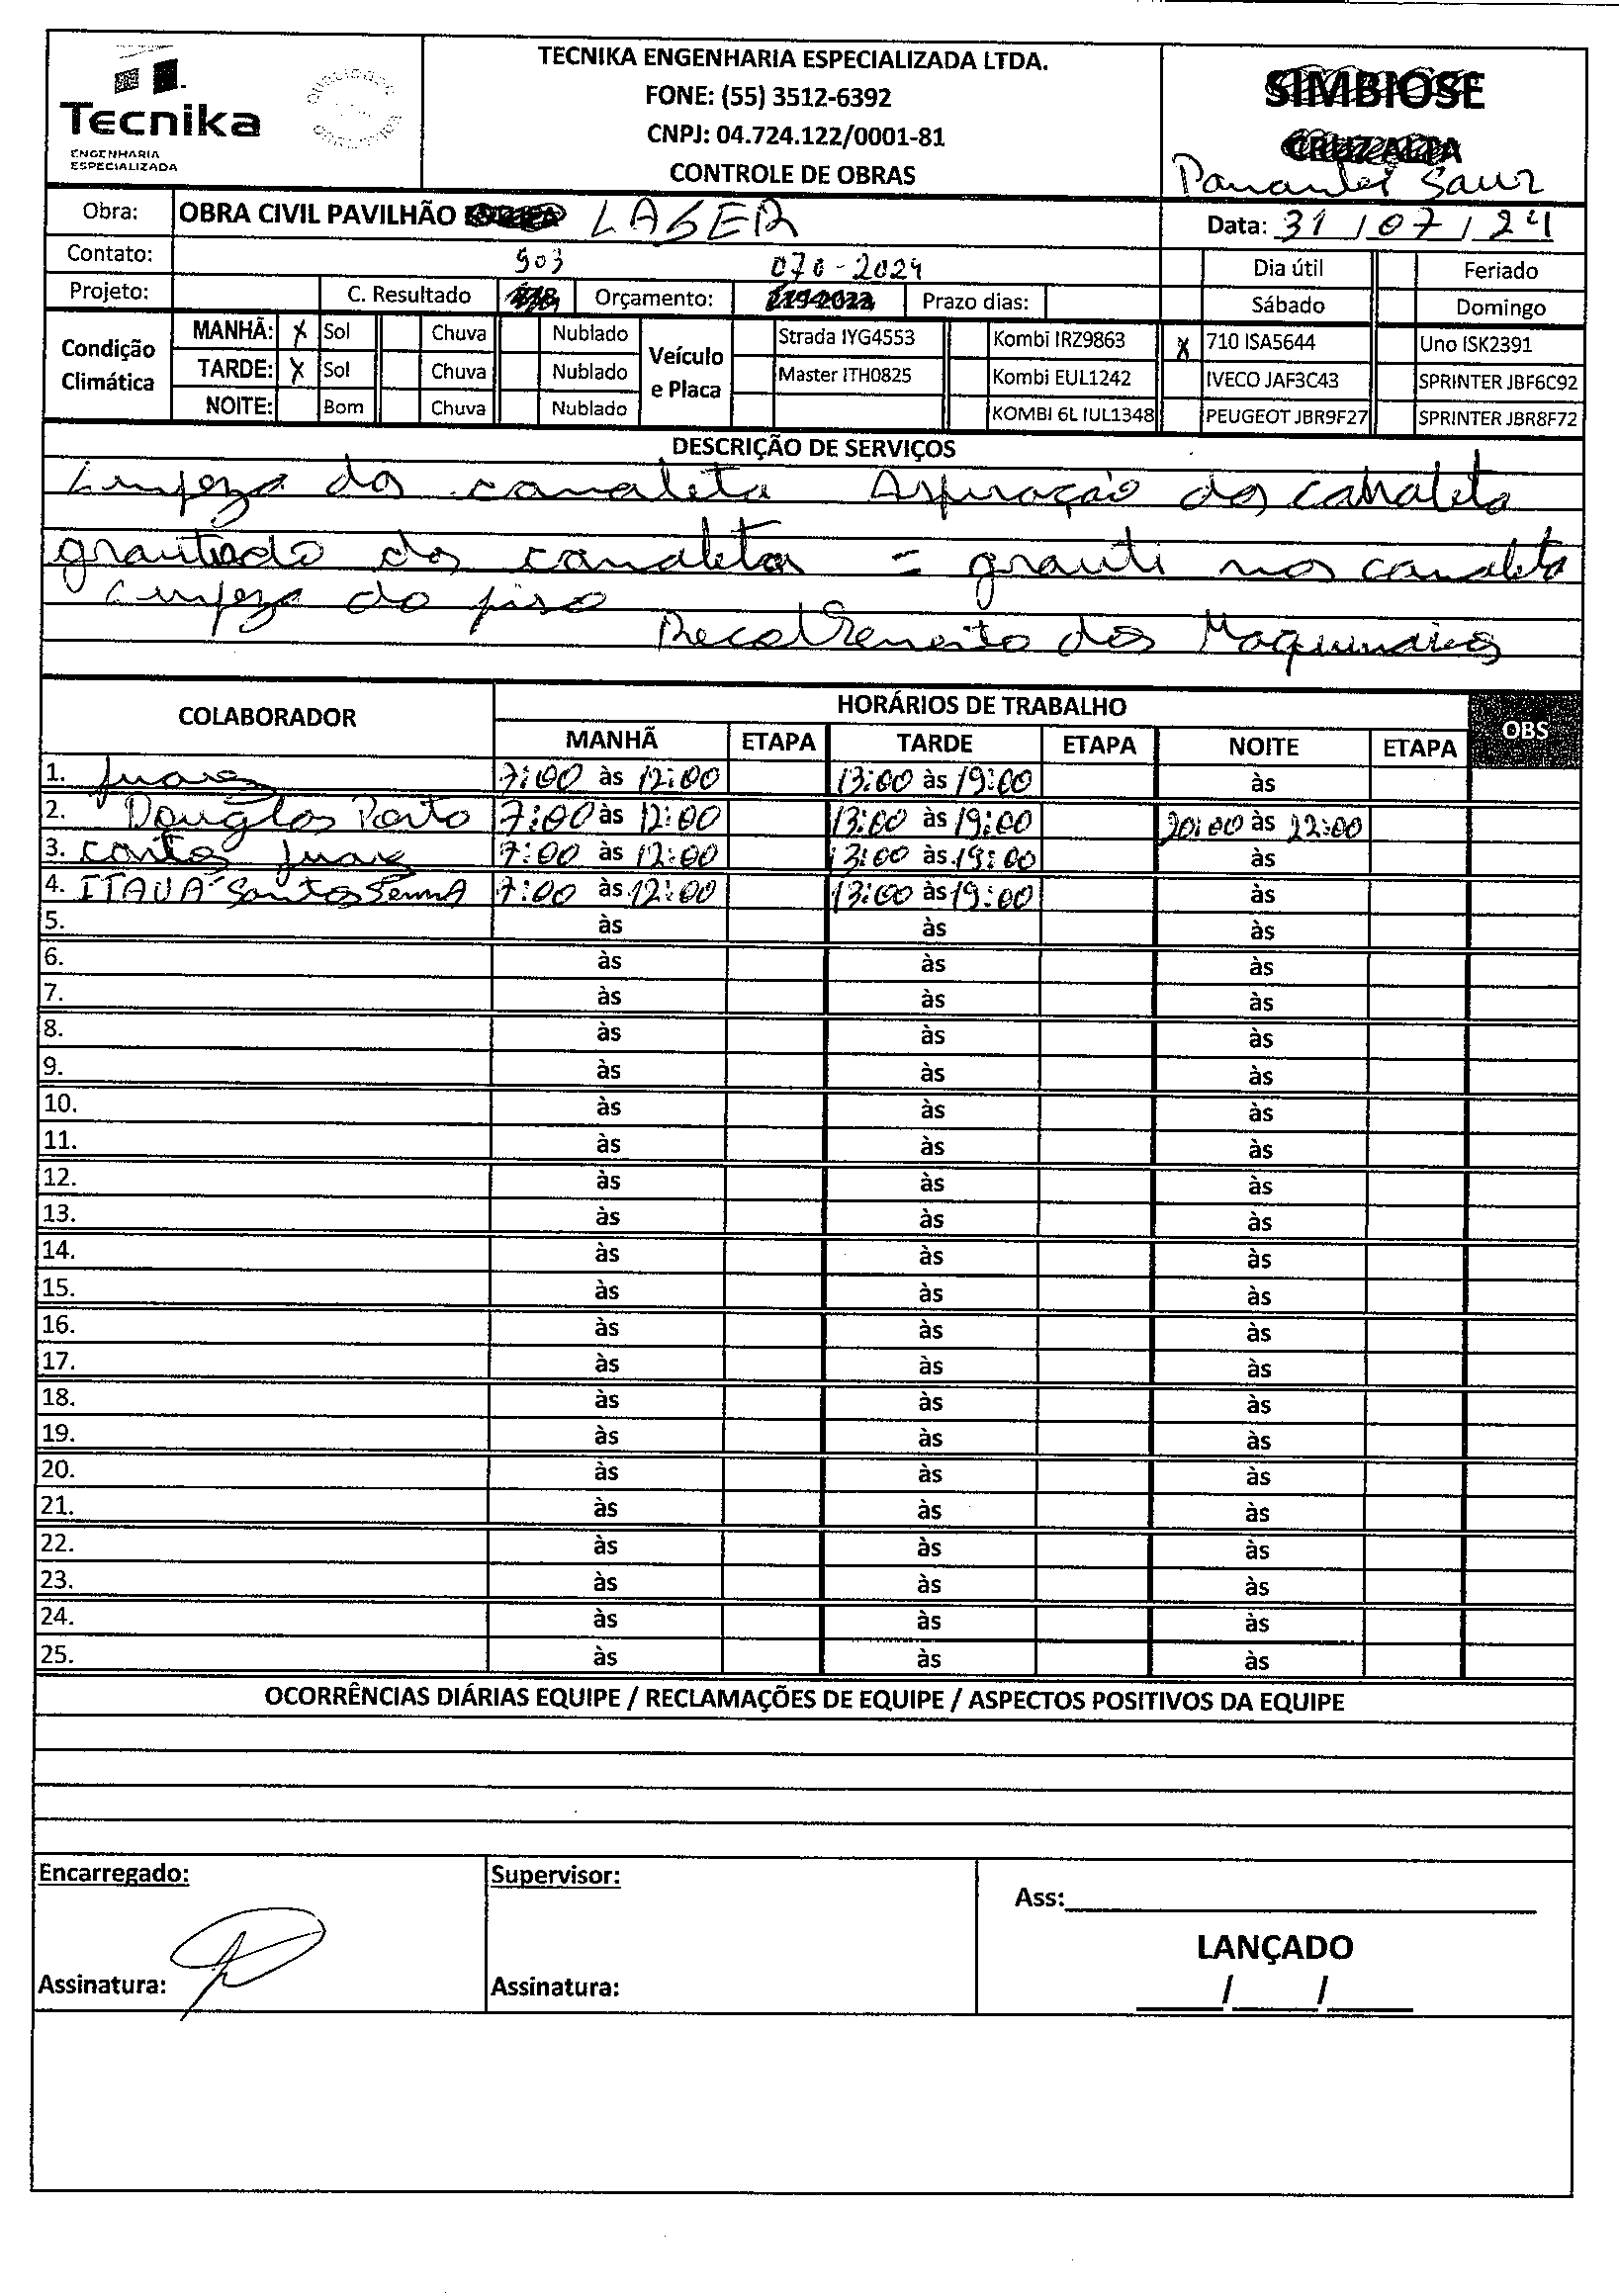 Tecnika
ENGENHARIA
ESPECIALIZADA
TECNIKA ENGENHARIA ESPECIALIZADA LTDA.
FONE: (55) 3512-6392
CNPJ: 04.724.122/0001-81
CONTROLE DE OBRAS
SIMBIOSE
CRUZ ALTA
Panambi Saur
Obra: OBRA CIVIL PAVILHÃO LASER
Data: 31/07/24
Contato:
903 070-2024
Dia útil Feriado
Projeto: C. Resultado Orçamento: 219-2022 Prazo dias:
Sábado Domingo
Condição Climática
MANHÃ: X Sol Chuva Nublado
TARDE: X Sol Chuva Nublado
NOITE: Bom Chuva Nublado
Veículo e Placa
Strada IYG4553 Kombi IRZ9863 X 710 ISA5644 Uno ISK2391
Master ITH0825 Kombi EUL1242 IVECO JAF3C43 SPRINTER JBF6C92
KOMBI 6L IUL1348 PEUGEOT JBR9F27 SPRINTER JBR8F72
DESCRIÇÃO DE SERVIÇOS
Limpeza das canaleta Aspiração das canaleta
grautiado das canaletas = grauti nas canaleta
Limpeza do piso
Recolhemento dos Maquinários
COLABORADOR HORÁRIOS DE TRABALHO OBS
MANHÃ ETAPA TARDE ETAPA NOITE ETAPA
1. Juarez 7:00 às 12:00 13:00 às 19:00 às
2. Douglas Porto 7:00 às 12:00 13:00 às 19:00 20:00 às 22:00
3. Juarez 7:00 às 12:00 13:00 às 19:00 às
4. ITAUÃ Santos Senna 7:00 às 12:00 13:00 às 19:00 às
5. às às às
6. às às às
7. às às às
8. às às às
9. às às às
10. às às às
11. às às às
12. às às às
13. às às às
14. às às às
15. às às às
16. às às às
17. às às às
18. às às às
19. às às às
20. às às às
21. às às às
22. às às às
23. às às às
24. às às às
25. às às às
OCORRÊNCIAS DIÁRIAS EQUIPE / RECLAMAÇÕES DE EQUIPE / ASPECTOS POSITIVOS DA EQUIPE
Encarregado: Supervisor:
Ass:
LANÇADO
Assinatura: Assinatura:
___/___/___